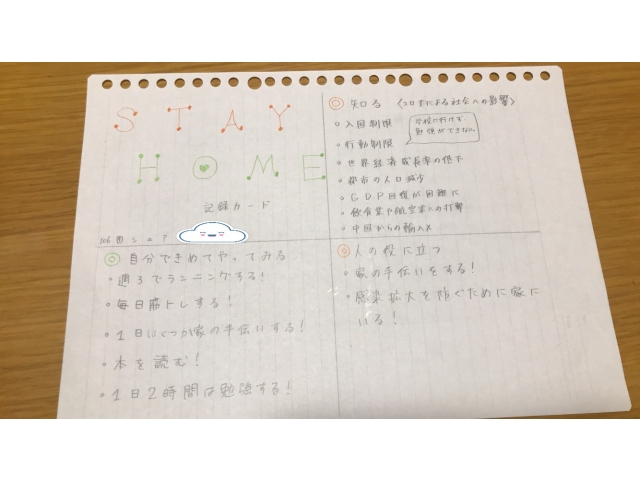 STAY
HOME
記録カード
◎ 知る 〈コロナによる社会への影響〉
・入国制限
・行動制限
学校に行けず、
勉強ができない。
・世界経済成長率の低下
・都市の人口減少
・GDP目標が困難に
・飲食業や航空業への打撃
・中国からの輸入×
◎ 自分できめてやってみる
・週3でランニングする!
・毎日筋トレする!
・1日いくつか家の手伝いする!
・本を読む!
・1日2時間は勉強する!
◎ 人の役に立つ
・家の手伝いをする!
・感染拡大を防ぐために家に
いる!